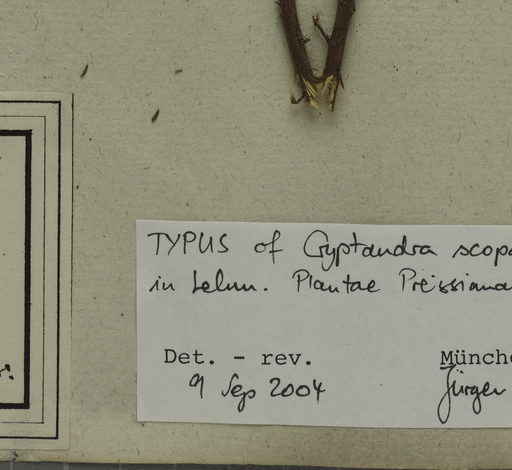 TYPUS of Cryptandra scopa
in Lehm. Plantae Preissiana
Det. - rev. Münch
9 Sep 2004 Jürgen